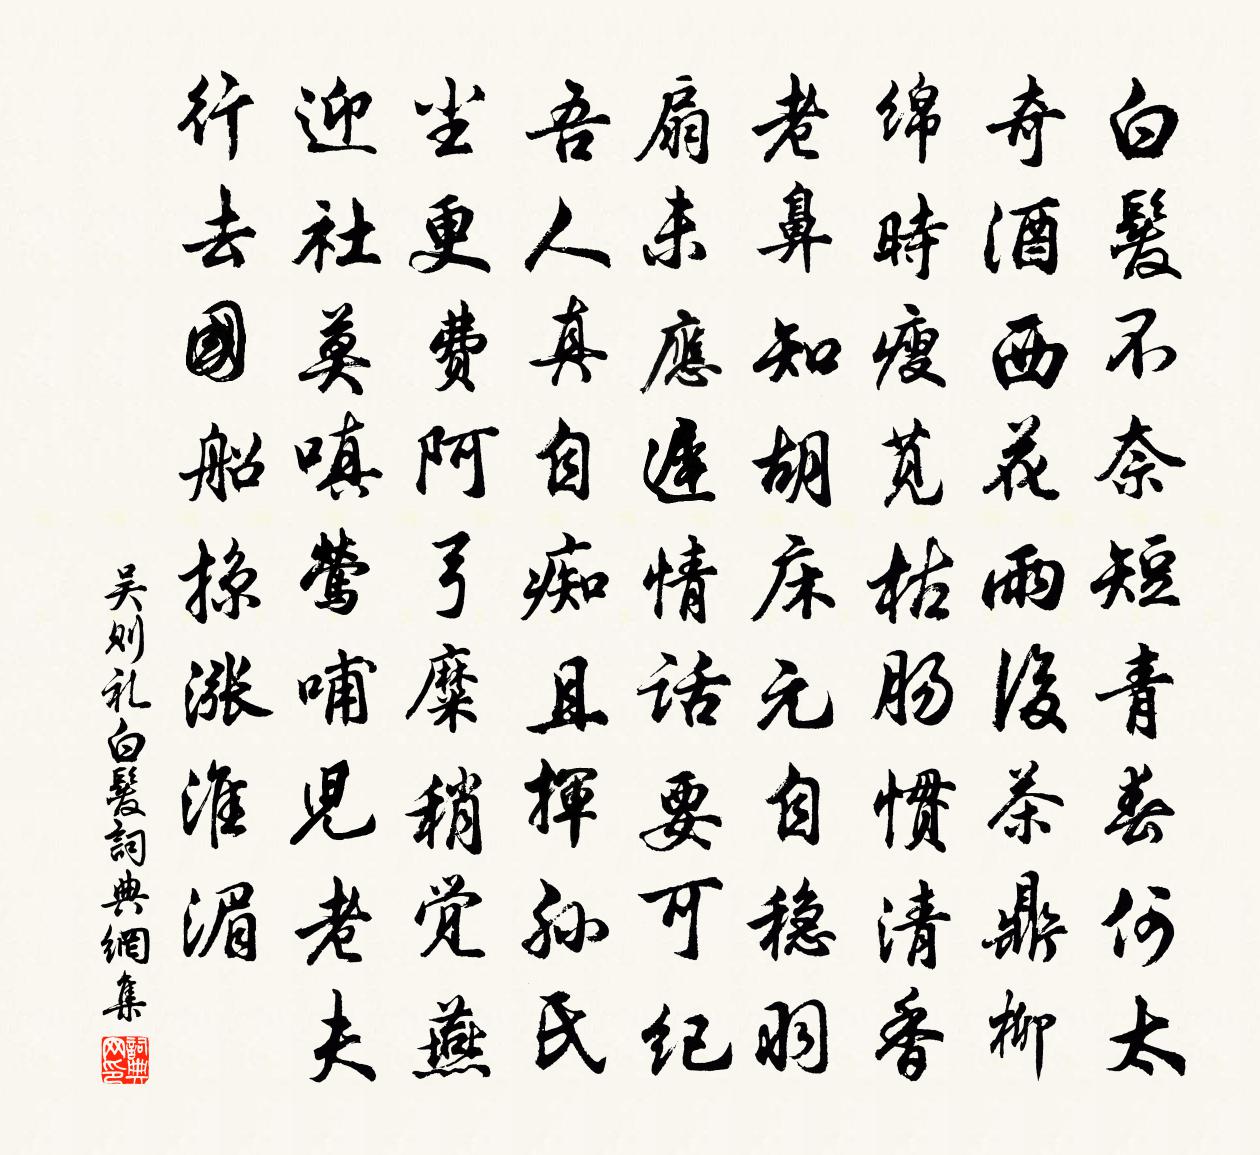 白髮不奈短青春何太
奇酒西花雨後茶鼎柳
绵時瘦覓枯肠慣清香
老鼻知胡床元自穏羽
扇未應遲情話要可紀
吾人真自痴且揮孙民
坐更費阿弓糜稍觉燕
迎社莫嗔鶯哺児老夫
行去國船掠漲淮湄
吴则礼白髮詞典網集
詞典网印